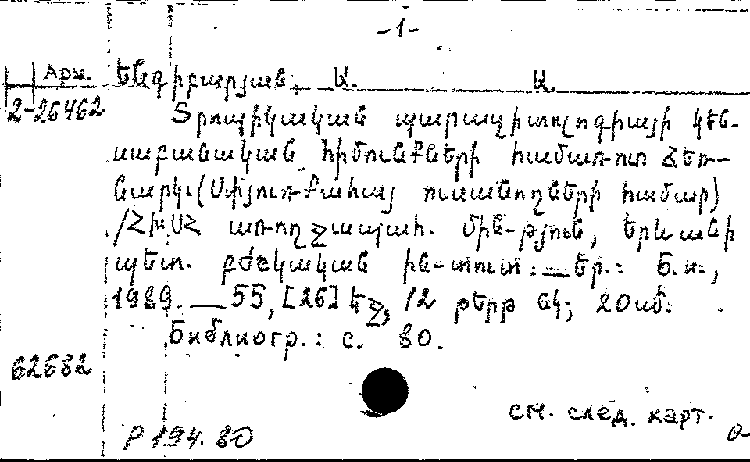 -1-
Арм. Եեգիբարյան, Ա. Ա.
2-26462 Տրոպիկական պարազիտոլոգիայի կեն-
սաբանական հիմունքների համառոտ ձեռ-
նարկ։ (Սփյուռքահայ ուսանողների համար)
/ՀԽՍՀ առողջապահ. մին-թյուն, Երևանի
պետ. բժշկական ին-տուտ։ — Եր.։ Б.и.,
1989. — 55, [26] էջ, 12 թերթ նկ; 20սմ։
Библиогр.: с. 80.
62682
см. след. карт.
P 194.80